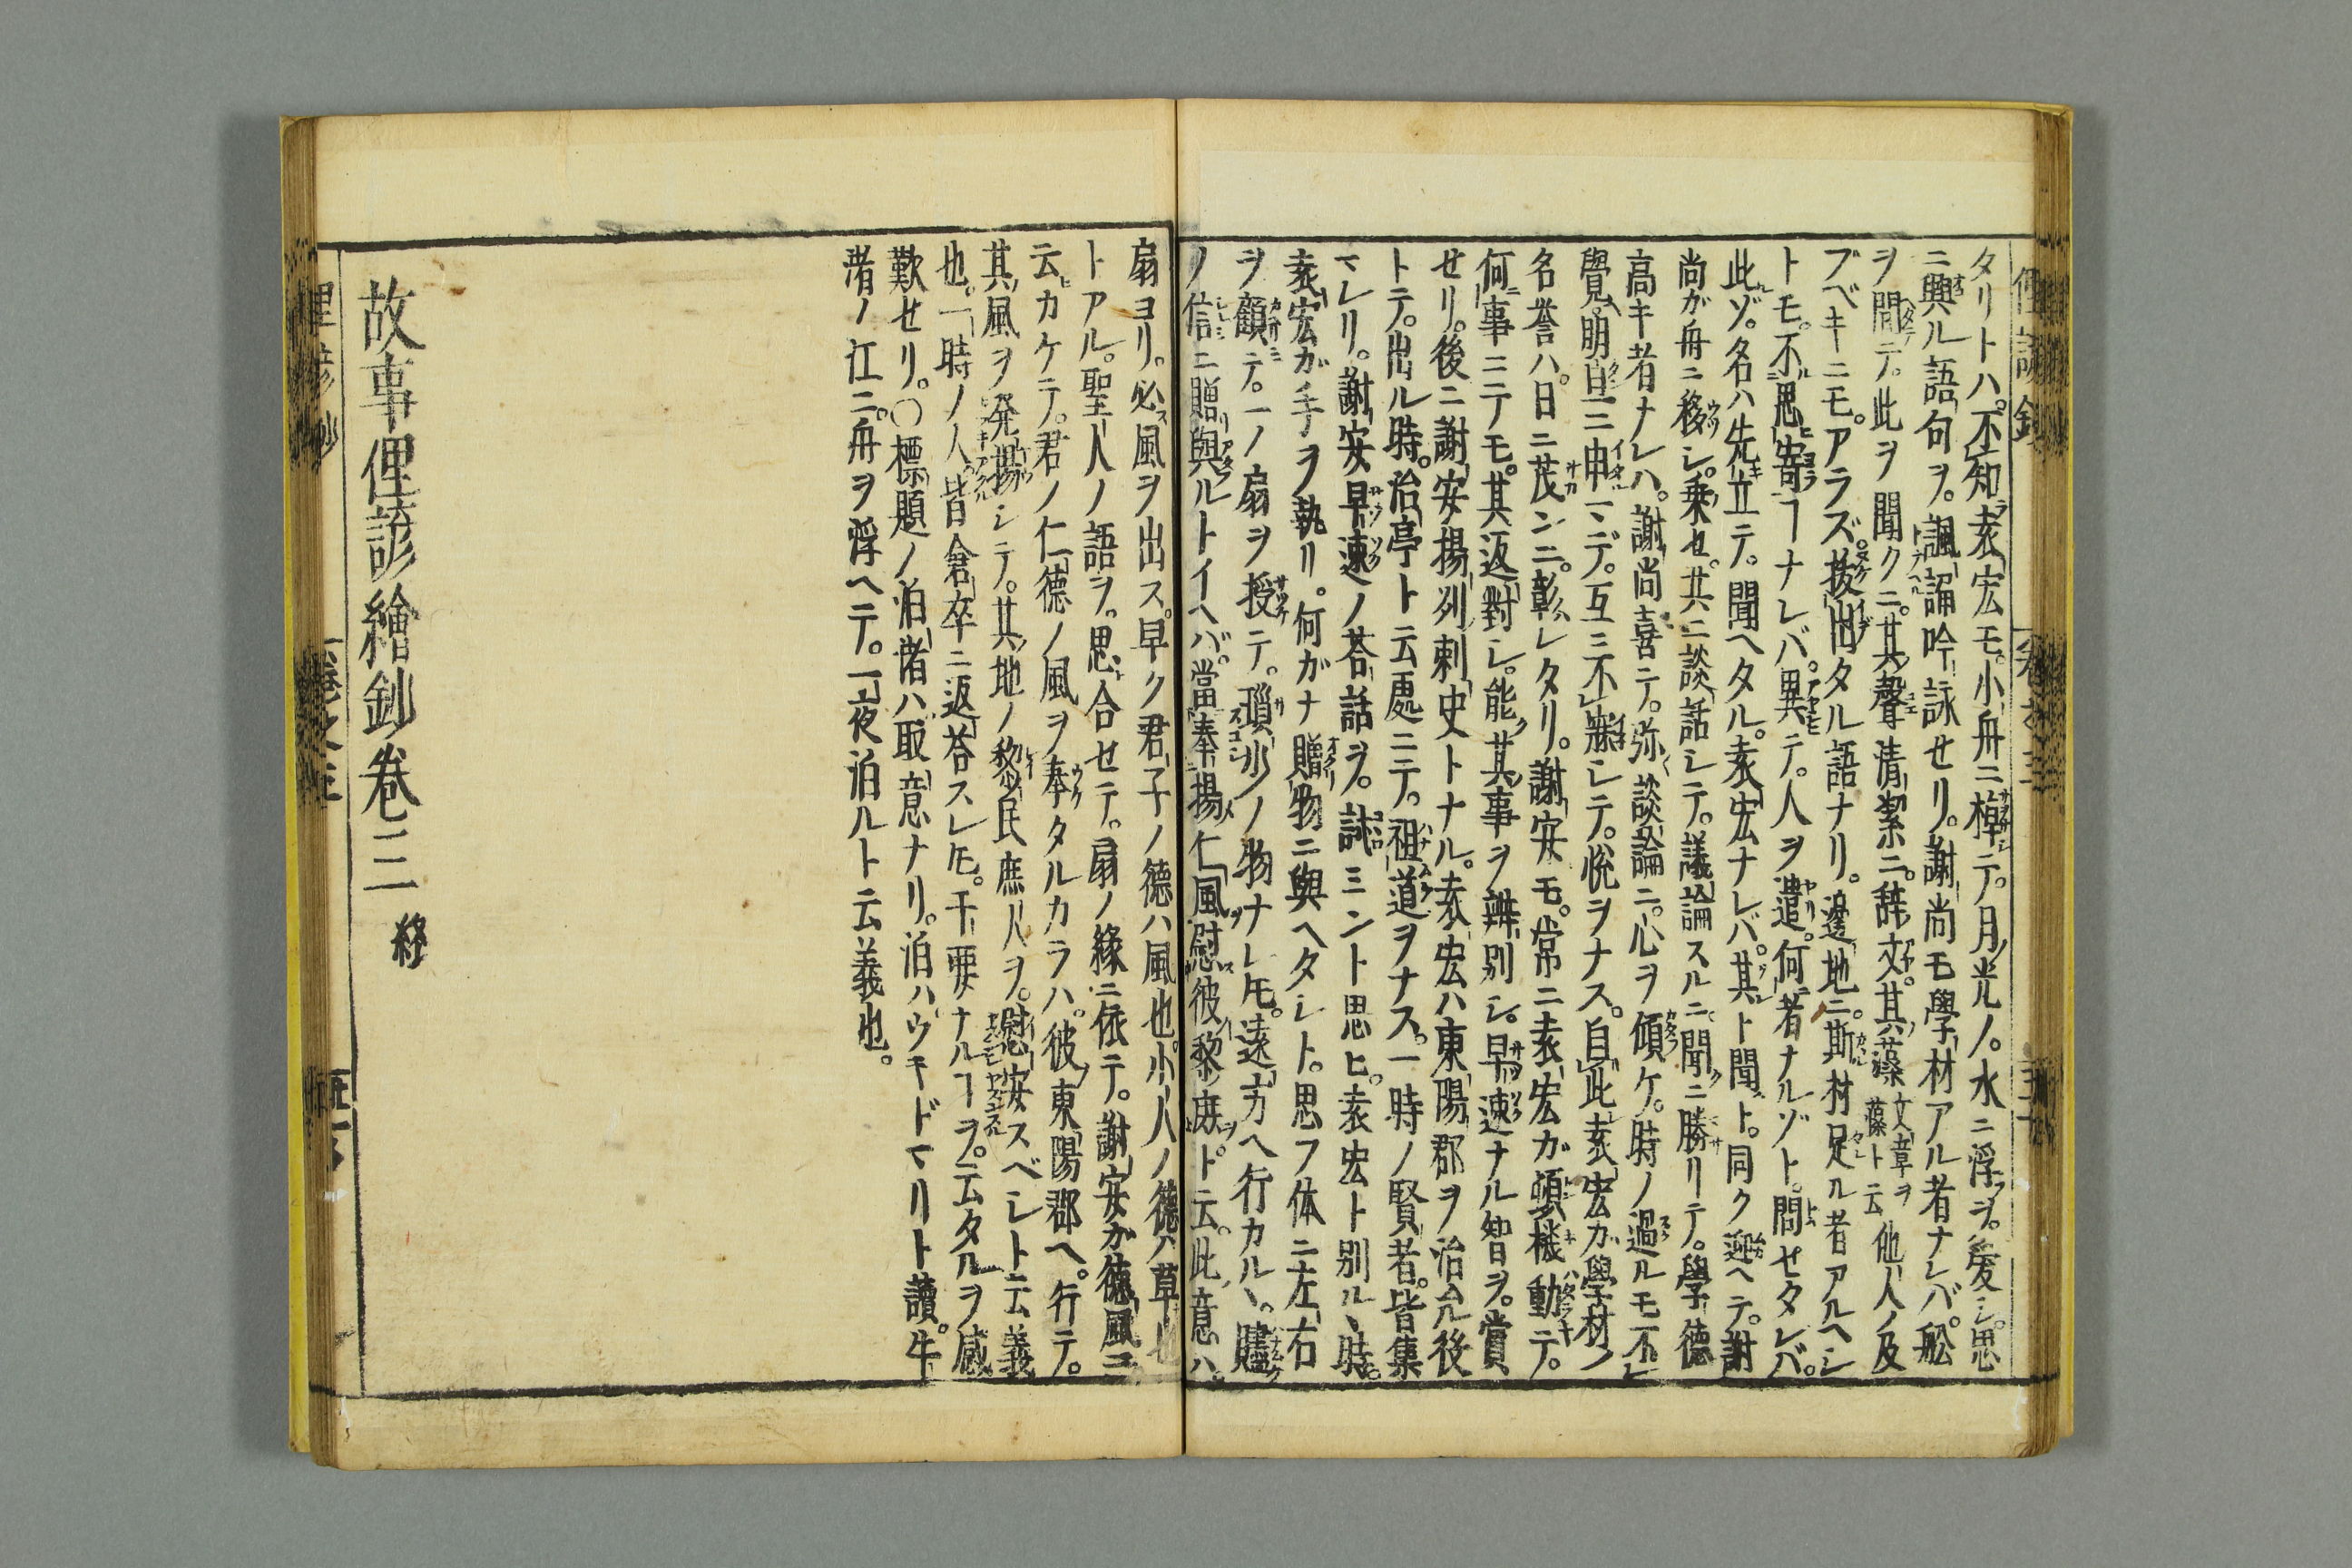 タリトハ。不知袁宏モ。小舟ニ棹テ。月光ノ。水ニ浮ヲ。愛シ。思
ニ興ル語句ヲ。諷詠吟詠せリ。謝尚モ學材アル者ナレバ。舩
ヲ間テ。此ヲ聞クニ。其聲清潔ニ。辞文。其藻文章ヲ藻ト云他人ノ及
ブベキニモ。アラズ。抜出タル語ナリ。邊地ニ。斯材足ル者アルヘシ
トモ。不思寄ヿナレバ。異テ。人ヲ遣。何者ナルゾト。問せタレバ。
此ゾ。名ハ先立テ。聞ヘタル。袁宏ナレバ。其ト聞ト。同ク迎ヘテ。謝
尚が舟ニ移シ。乗せ。共ニ談話シテ。議論スルニ。聞ニ勝リテ。學德
高キ者ナレハ。謝尚喜ニテ。弥談論ニ。心ヲ傾ケ。時ノ過ルモ不レ
覺。明旦ニ申マデ。互ニ不寐シテ。悦ヲナス。自此袁宏カ學材ノ
名誉ハ。日ニ茂ンニ。彰レタリ。謝安モ。常ニ袁宏が頓機動テ。
何事ニテモ。其返對シ。能其事ヲ辨別シ。早速ナル智ヲ。賞
せリ。後ニ謝安揚刕刺史トナル。袁宏ハ東陽郡ヲ治ル後
トテ。出ル時。治亭ト云処ニテ。祖道ヲナス。一時ノ賢者。皆集
マレリ。謝安早速ノ荅話ヲ。試ミント思ヒ。袁宏ト別ルヽ時。
袁宏が手ヲ執リ。何ガナ贈物ニ與ヘタシト。思フ体ニ左右
ヲ顧テ。一ノ扇ヲ授テ。瑣少ノ物ナレ𪜈。遠方ヘ行カルヽ。贐
ノ信ニ贈與ルトイヘバ。當奉揚仁風慰彼黎庶ト云。此意ハ。
扇ヨリ。必風ヲ出ス。早ク君子ノ德ハ風也。小人ノ德ハ草也
トアル。聖人ノ語ヲ。思合せテ。扇ノ縁ニ依テ。謝安が德風ニ
云カケテ。君ノ仁德ノ風ヲ奉タルカラハ。彼東陽郡ヘ。行テ。
其風ヲ発揚シテ。其地ノ黎民庶人ヲ。慰安スベシト云義
也。一時ノ人皆倉卒ニ返荅スレ𪜈。干要ナルヿヲ。云タルヲ感
歎せリ。〇標題ノ泊渚ハ取意ナリ。泊ハウキドマリト讀。牛
渚ノ江ニ。舟ヲ浮ヘテ。一夜泊ルト云義也。
故事俚諺繪鈔卷三 終